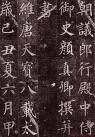 朝議郎行殿中侍
御史顏真卿撰并
維唐天寶八載太
歲己丑夏六月甲